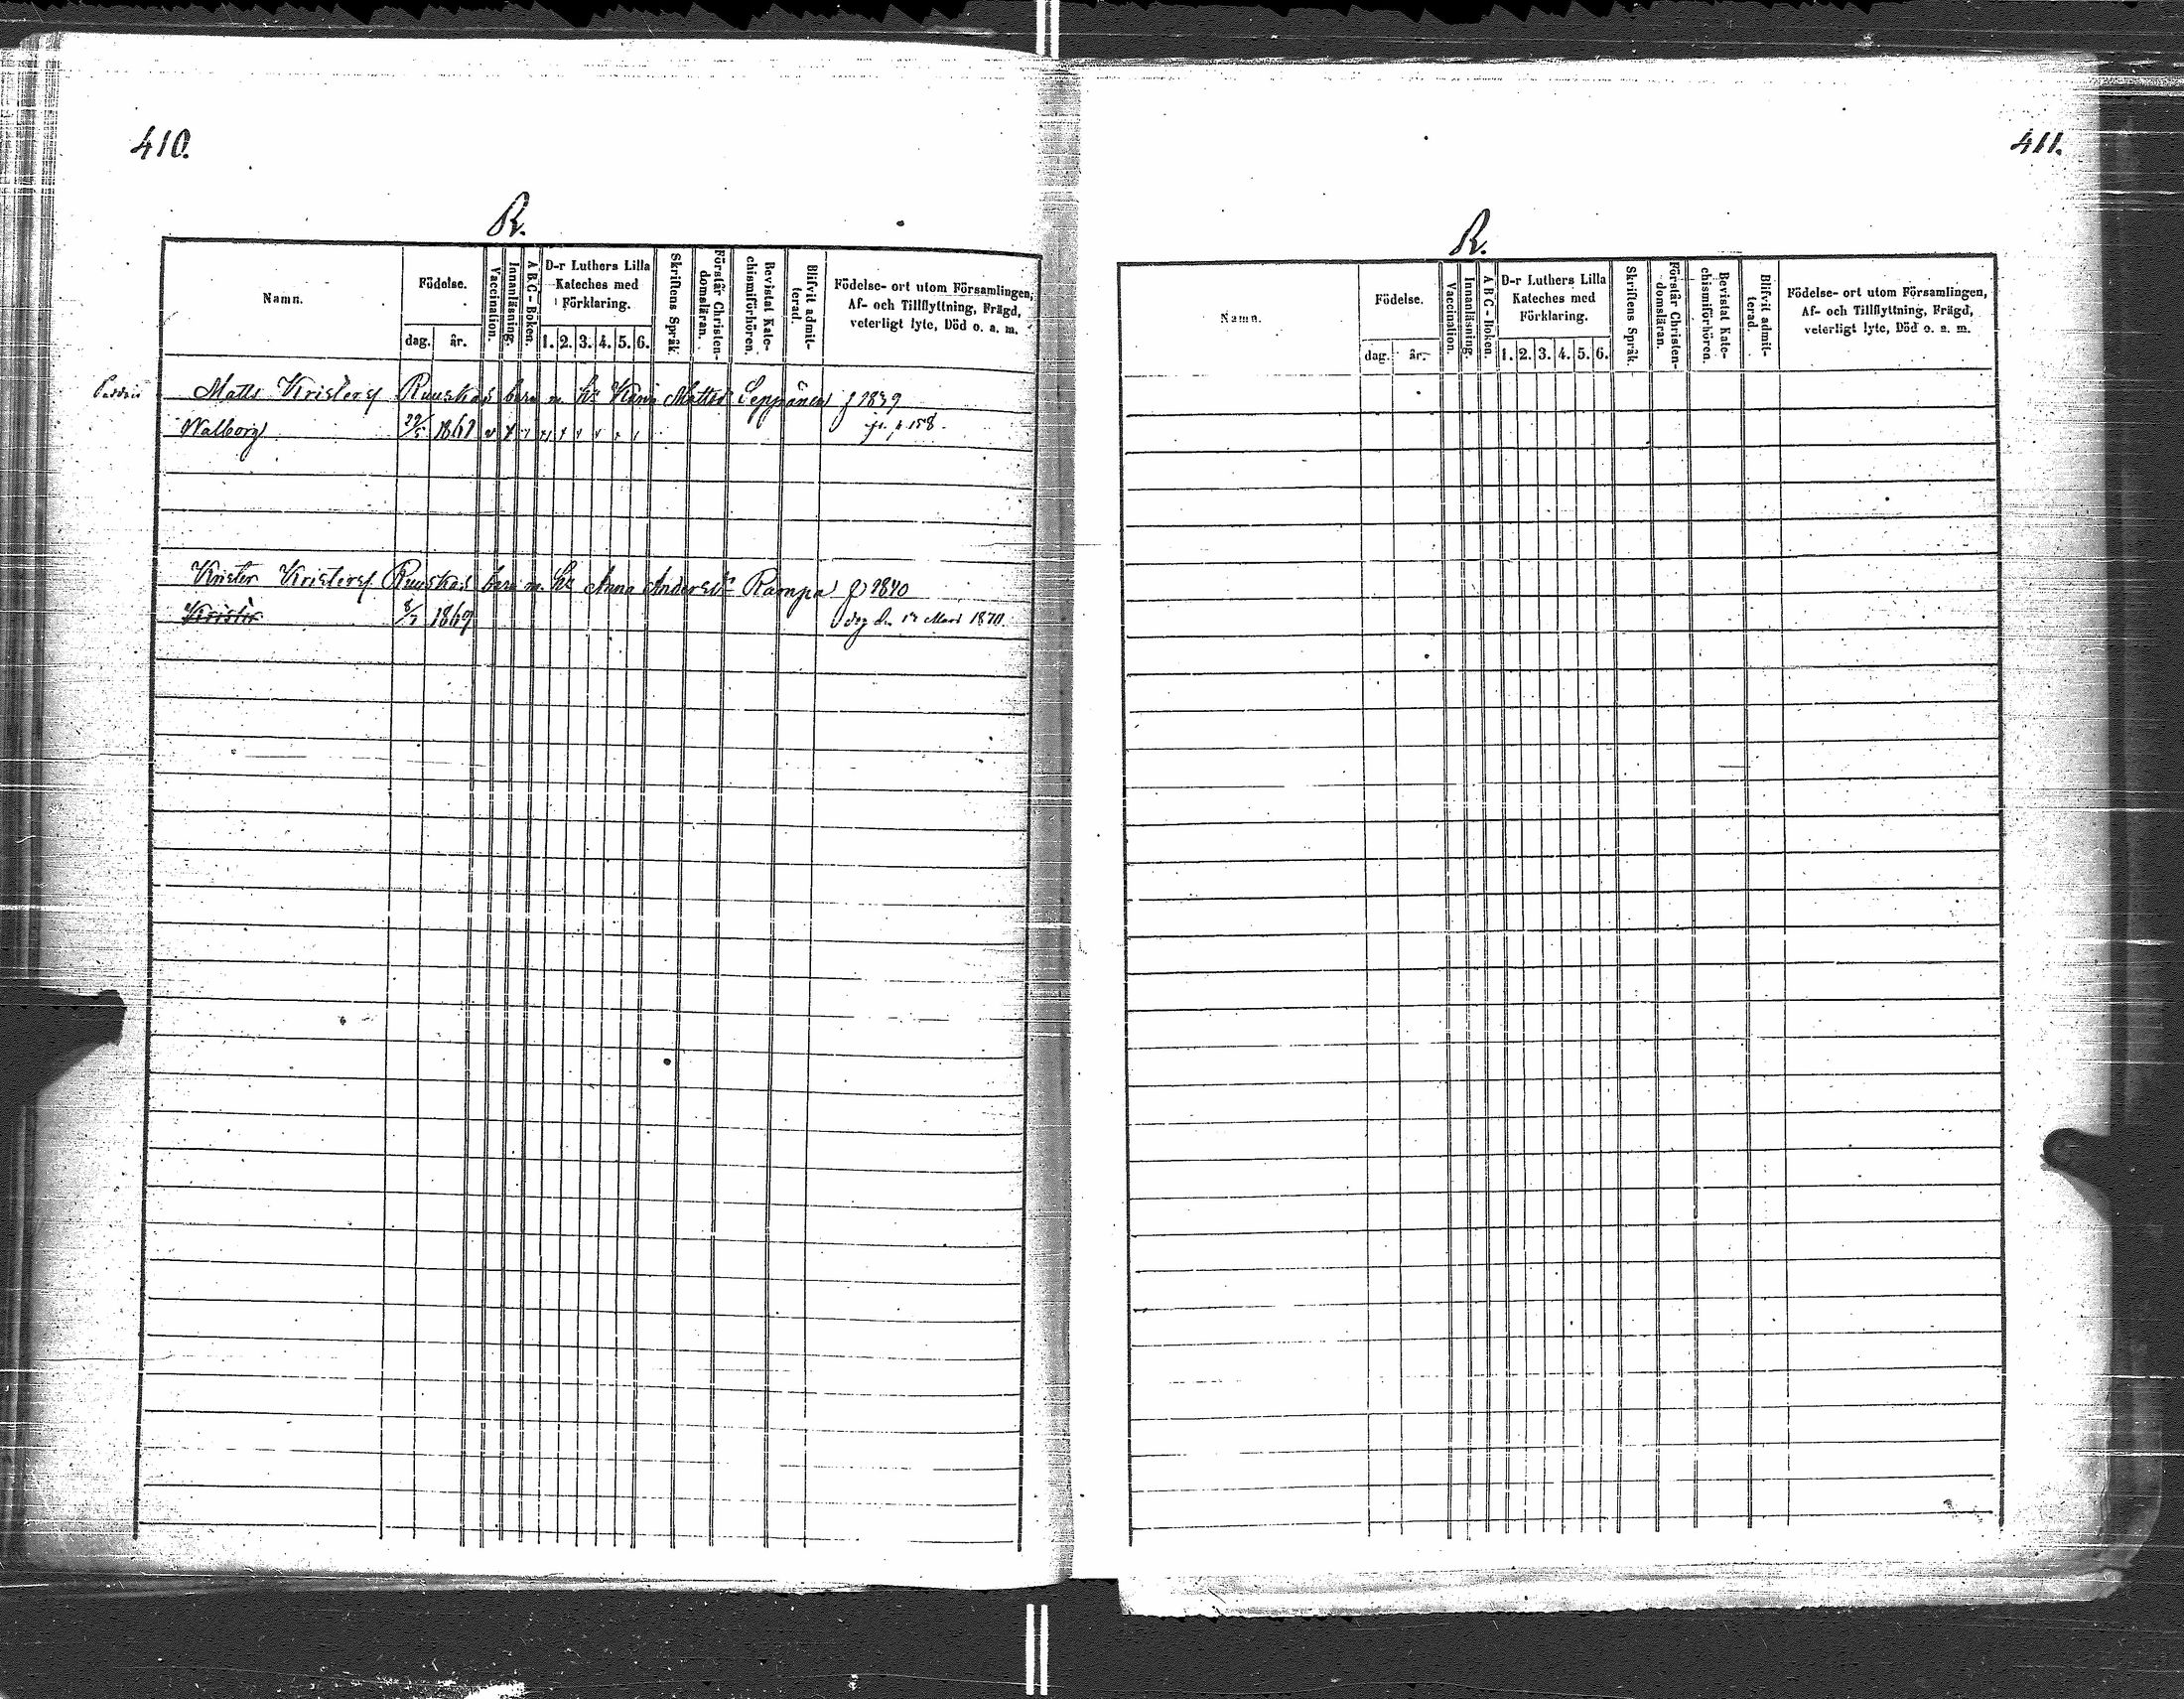 410.
R.
Namn.
Födelse.
dag.
år.
Vaccination.
Innanläsning.
A B C - Boken.
D-r Luthers Lilla
Kateches med
Förklaring.
1. 2. 3. 4. 5. 6.
Skriftens Språk.
Förstår Christen-
domsläran.
Bevistat Kate-
chismiförhören.
Blifvit admit-
terad.
Födelse- ort utom Församlingen,
Af- och Tillflyttning, Frägd,
veterligt lyte, Död o. a. m.
Matts Kristers Ruuskas barn m. Matts Seppänen f 1839
Walborg 1868 158
Krister Kristers Ruuskas barn m. Anna Andersd Rampa f 1840
Krister 1869 Mars 1870.
411.
R.
Namn.
Födelse.
dag.
år.
Vaccination.
Innanläsning.
A B C - Boken.
D-r Luthers Lilla
Kateches med
Förklaring.
1. 2. 3. 4. 5. 6.
Skriftens Språk.
Förstår Christen-
domsläran.
Bevistat Kate-
chismiförhören.
Blifvit admit-
terad.
Födelse- ort utom Församlingen,
Af- och Tillflyttning, Frägd,
veterligt lyte, Död o. a. m.